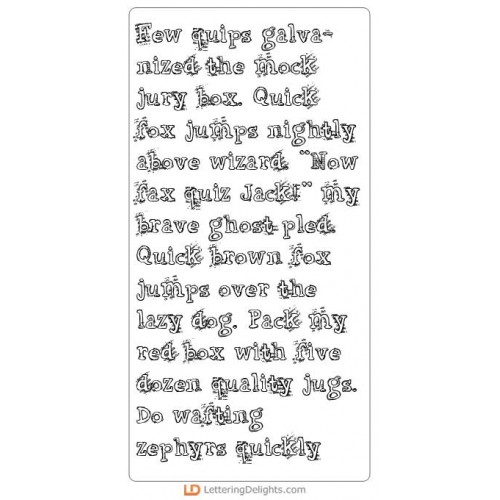 Few quips galva-
nized the mock
jury box. Quick
fox jumps nightly
above wizard. "Now
fax quiz Jack!" my
brave ghost pled.
Quick brown fox
jumps over the
lazy dog. Pack my
red box with five
dozen quality jugs.
Do wafting
zephyrs quickly
LD LetteringDelights.com